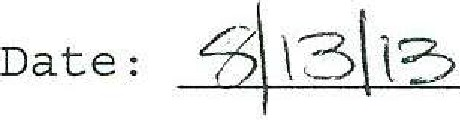 Date: 8/13/13